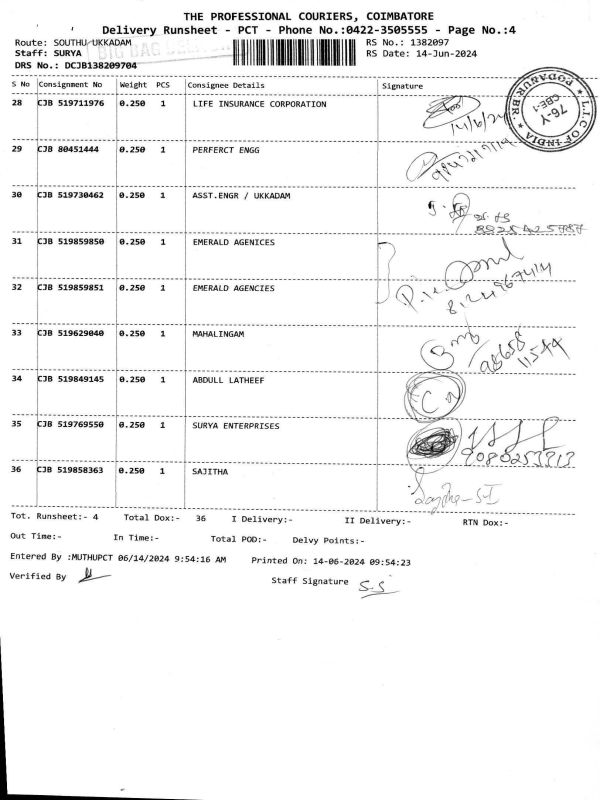 THE PROFESSIONAL COURIERS, COIMBATORE
Delivery Runsheet - PCT - Phone No.:0422-3505555 - Page No.:4
Route: SOUTHU UKKADAM RS No.: 1382097
Staff: SURYA BIG BAG RS Date: 14-Jun-2024
DRS No.: DCJB138209704
S No Consignment No Weight PCS Consignee Details Signature
28 CJB 519711976 0.250 1 LIFE INSURANCE CORPORATION
14/6/24
L.I.C OF INDIA PODANUR.BR. 76-Y CBE-1
29 CJB 80451444 0.250 1 PERFERCT ENGG
30 CJB 519730462 0.250 1 ASST.ENGR / UKKADAM
31 CJB 519859850 0.250 1 EMERALD AGENICES
32 CJB 519859851 0.250 1 EMERALD AGENCIES
8124967414
33 CJB 519629040 0.250 1 MAHALINGAM
98658
11544
34 CJB 519849145 0.250 1 ABDULL LATHEEF
35 CJB 519769550 0.250 1 SURYA ENTERPRISES
9080253913
36 CJB 519858363 0.250 1 SAJITHA
Tot. Runsheet:- 4 Total Dox:- 36 I Delivery:- II Delivery:- RTN Dox:-
Out Time:- In Time:- Total POD:- Delvy Points:-
Entered By :MUTHUPCT 06/14/2024 9:54:16 AM Printed On: 14-06-2024 09:54:23
Verified By Staff Signature S.S